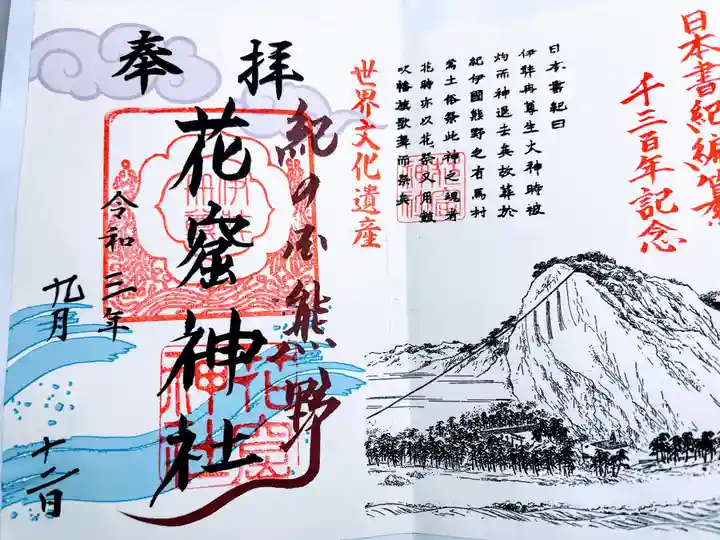 日本書紀編纂
千三百年記念
日本書紀曰
伊弉冉尊生火神時被
灼而神退去矣故葬於
紀伊國熊野之有馬村
焉土俗祭此神之魂者
花時亦以花祭又用鼓
吹幡旗歌舞而祭矣
世界文化遺産
奉拝
紀の国熊野
花窟神社
令和三年
九月
十二日
花窟
神社